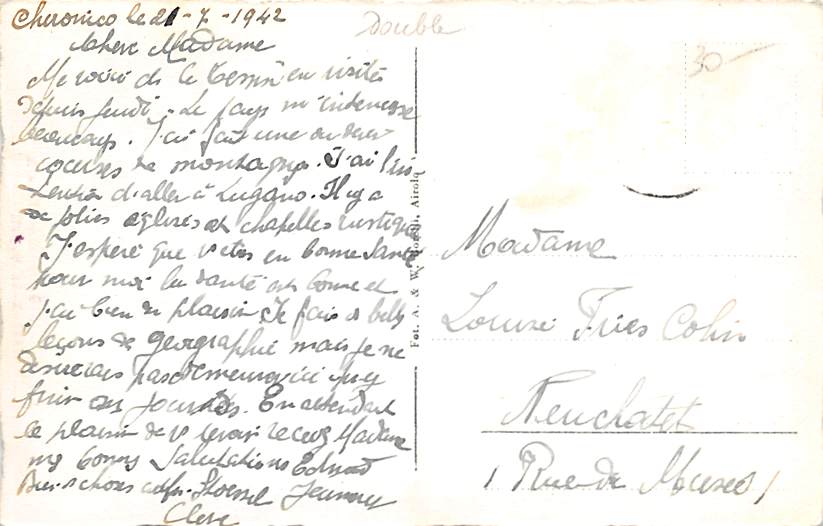 Chironico le 21-7-1942
Double
30
Chere Madame
Me voici ds le Tessin en visite
depuis jeudi. Le pays m'intéresse
beaucoup. J'ai fait une ou deux
courses de montagne. J'ai l'in-
tention d'aller à Lugano. Il y a
de jolies églises et chapelles rustiques
J'espère que v etes en bonne santé
pour moi la santé est bonne et
j'ai bien du plaisir. Je fais de belles
leçons de géographie mais je ne
desirerais pas demeurer ici
finir mes jours. En attendant
le plaisir de v revoir recevez Madame
mes bonnes Salutations
Jeanney
Fot. A. & W. Borelli, Airolo
Madame
Louise Fries Colin
Neuchatel
1 Rue de Musée 1